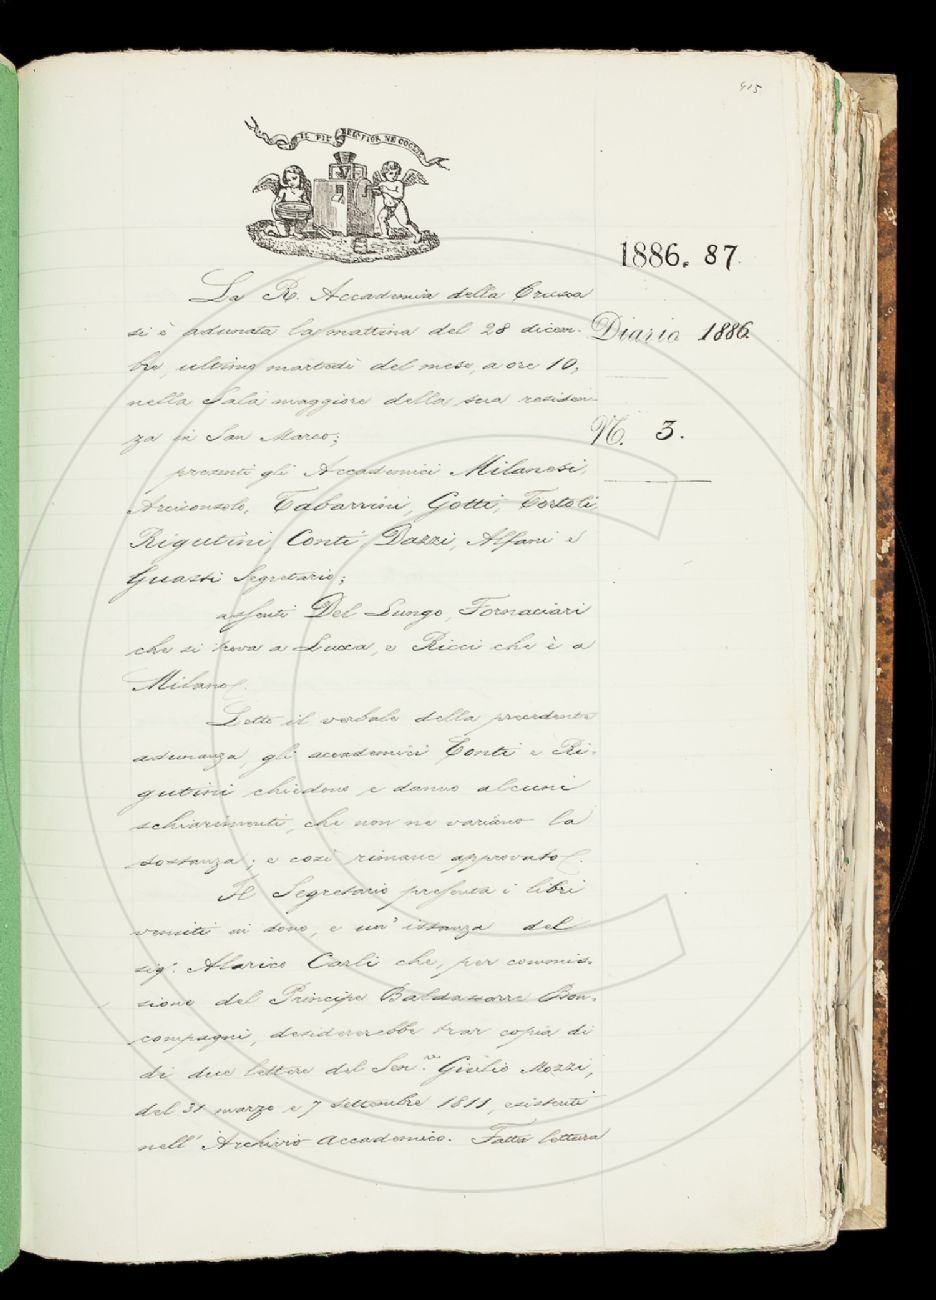 415
IL PIÙ BEL FIOR NE COGLIE
1886. 87.
La R. Accademia della Crusca
si è adunata la mattina del 28 dicem-
Diario 1886.
bre, ultimo martedì del mese, a ore 10,
nella Sala maggiore della sua residen-
za in San Marco;
N. 3.
presenti gli Accademici Milanesi,
Arciconsolo, Tabarrini, Gotti, Tortoli,
Rigutini, Conti, Dazzi, Alfani e
Guasti Segretario;
assenti Del Lungo, Fornaciari
che si trova a Lucca, e Ricci che è a
Milano.
Letto il verbale della precedente
adunanza, gli accademici Conti e Ri-
gutini chiedono e danno alcuni
schiarimenti, che non ne variano la
sostanza; e così rimane approvato.
Il Segretario presenta i libri
venuti in dono, e un' istanza del
sig.r Alarico Carli che, per commis-
sione del Principe Baldassarre Bon-
compagni, desidererebbe trar copia di
di due lettere del Sen.re Giulio Mozzi,
del 31 marzo e 7 settembre 1811, esistenti
nell' Archivio accademico. Fatta lettura